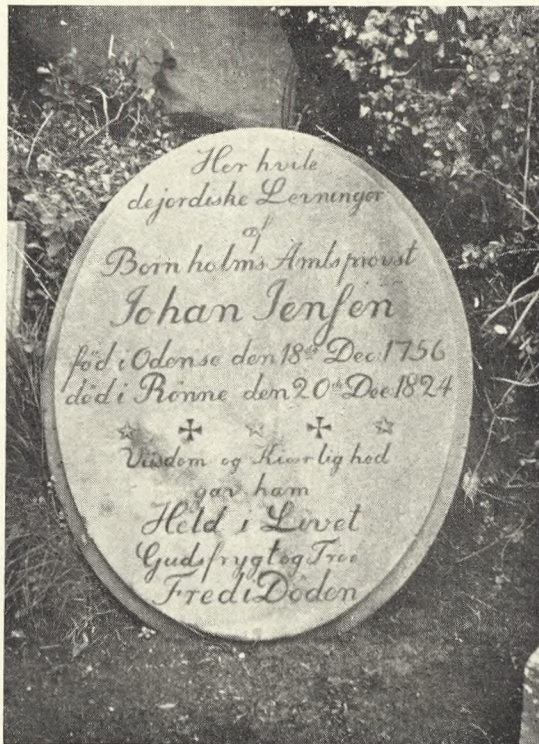 Her hvile
de jordiske Levninger
af
Bornholms Amtsprovst
Johan Jensen
född i Odense den 18de Dec: 1756
död i Rønne den 20de Dec: 1824
Viisdom og Kiærlighed
gav ham
Held i Livet
Gudsfrygt og Troe
Fred i Döden